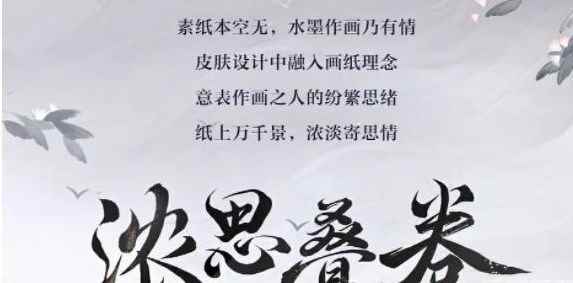 素纸本空无，水墨作画乃有情
皮肤设计中融入画纸理念
意表作画之人的纷繁思绪
纸上万千景，浓淡寄思情
浓思叠卷